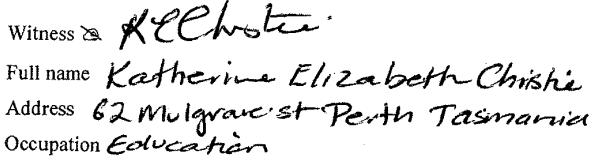 Witness KEChristie
Full name Katherine Elizabeth Christie
Address 62 Mulgrave st Perth Tasmania
Occupation Education